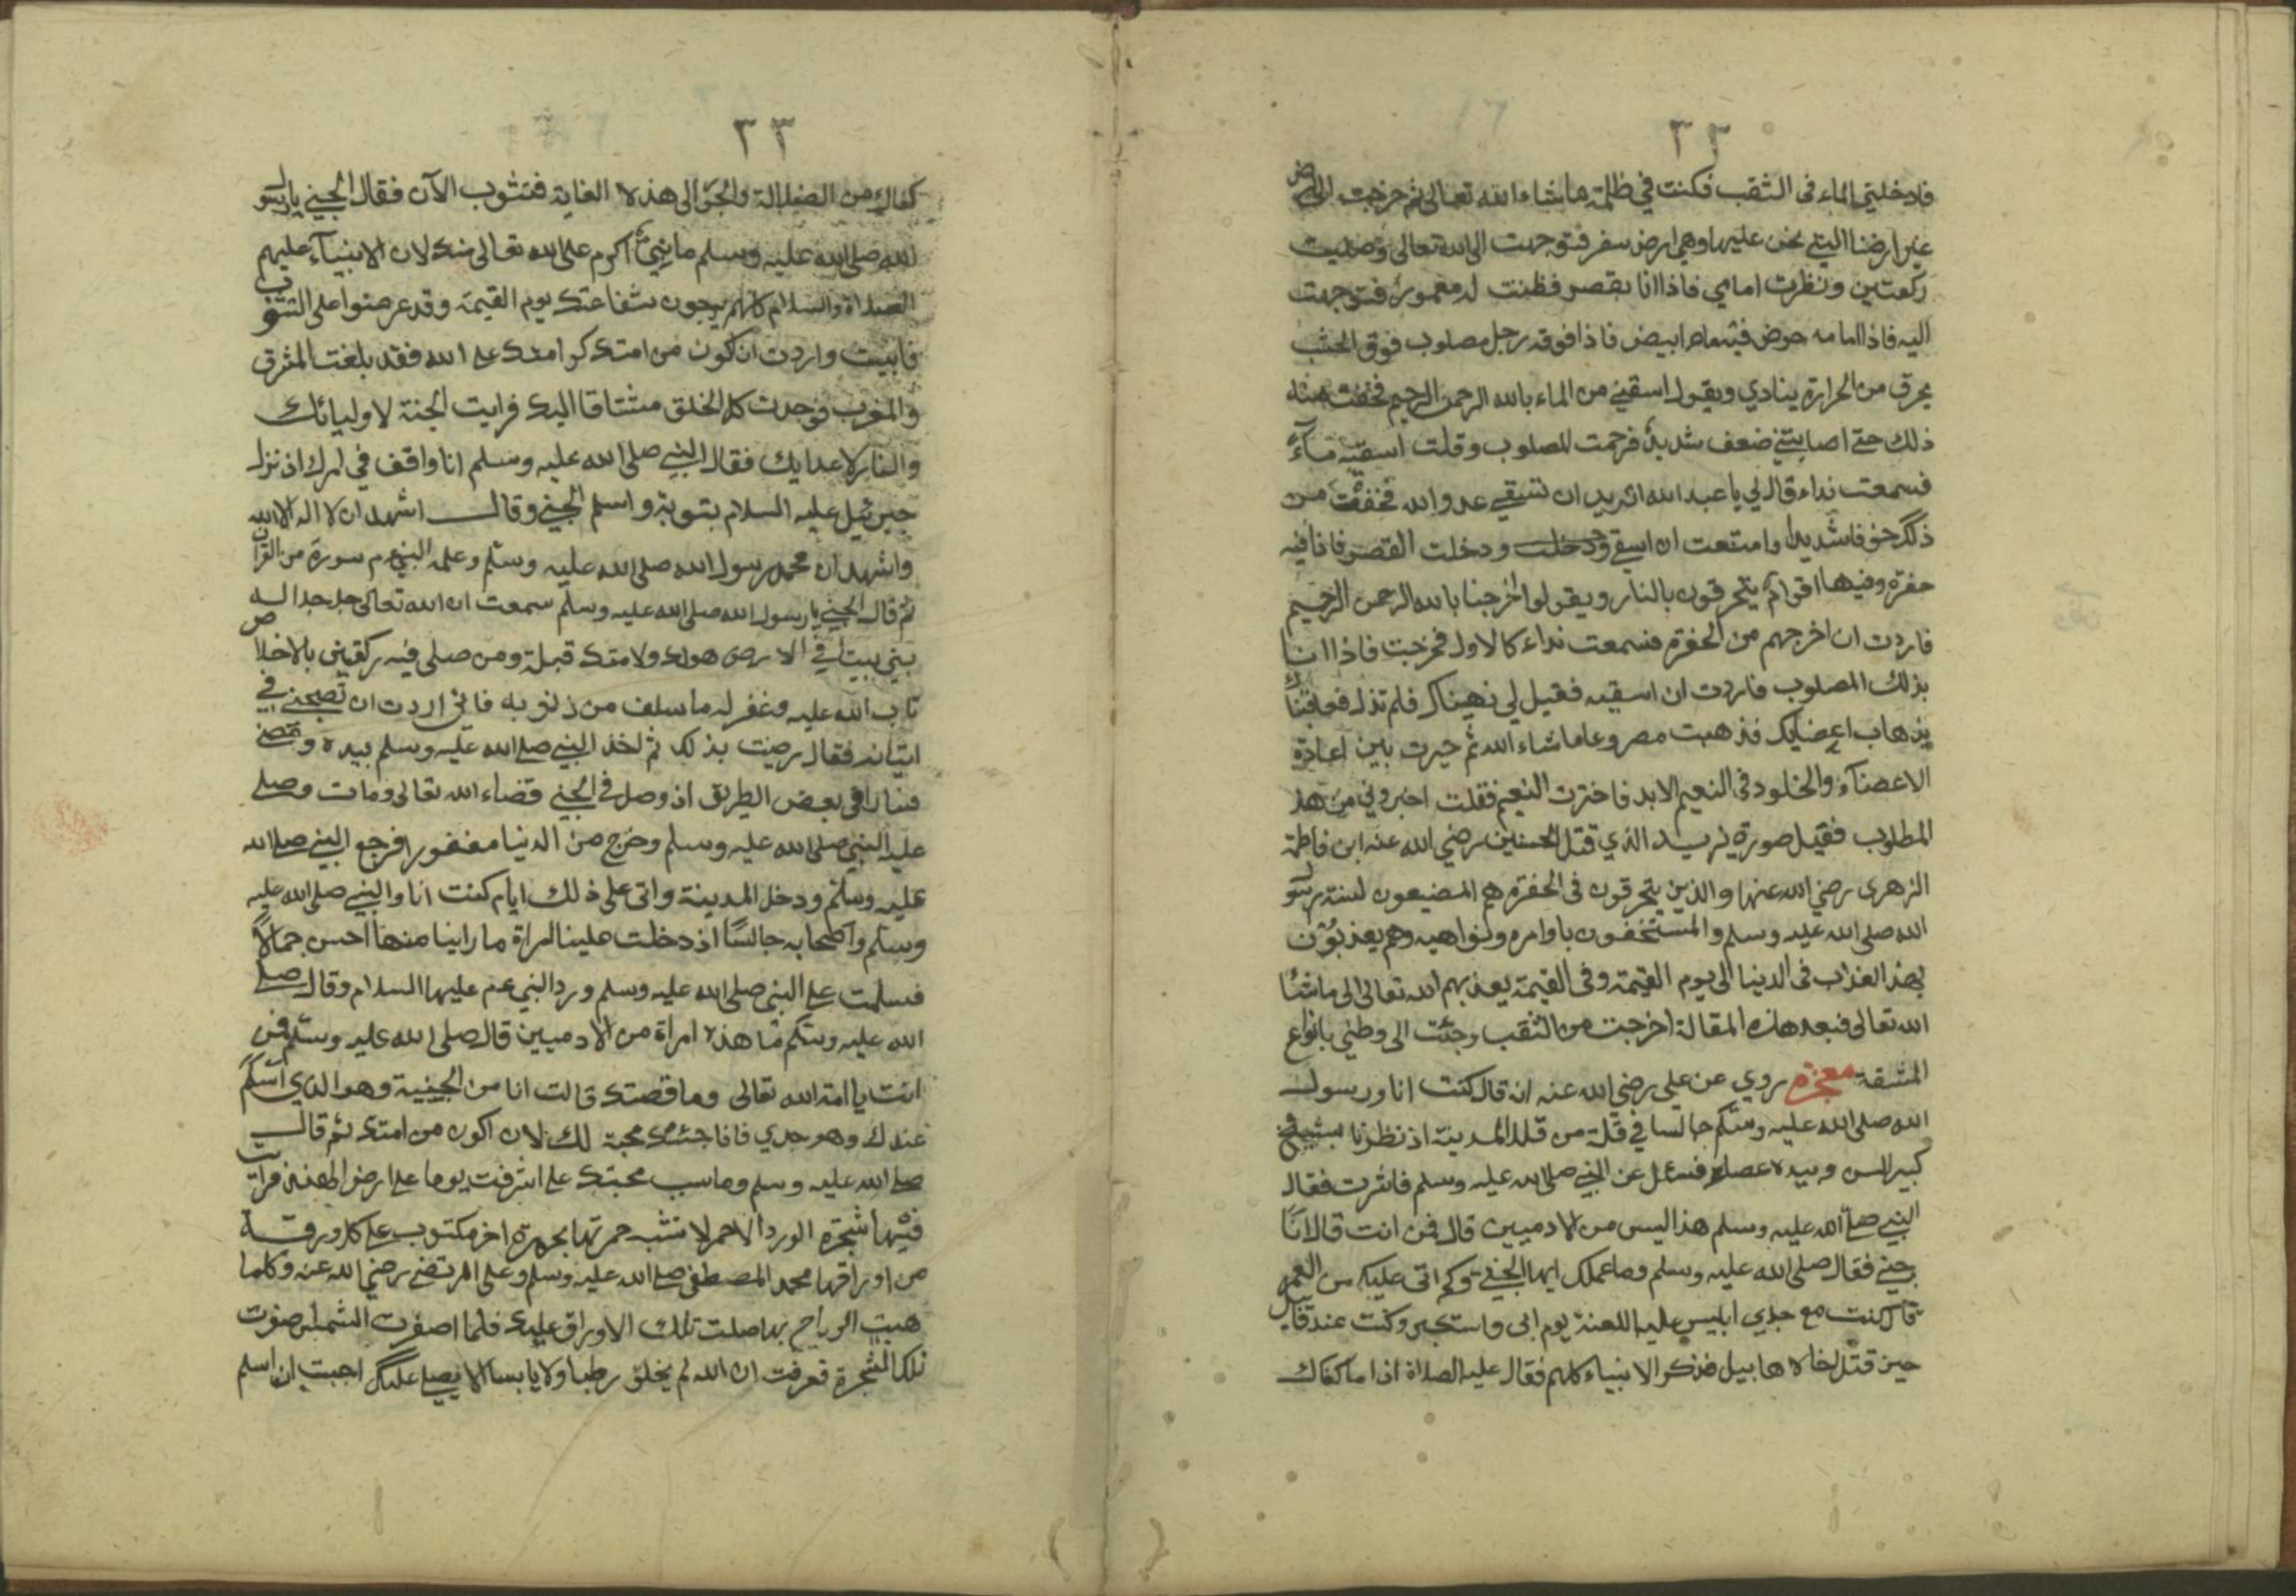 ٣٢
فادخلتني الماء في الثقب فكنت في ظلمة ماشاء الله تعالى ثم خرجت الى ارض
غير ارضنا التي نحن عليها وهي ارض سفر فتوجهت الى الله تعالى وصليت
ركعتين ونظرت امامي فاذا انا بقصر فظننت له معمورة فتوجهت
اليه فاذا امامه حوض فيه ماء ابيض فاذا فوقه رجل مصلوب فوق الخشب
يحرق من الحرارة ينادي ويقول اسقيني من الماء بالله الرحمن الرحيم فخفت منه
ذلك حتى اصابتني ضعف شديد فرحمت المصلوب وقلت اسقيه ماء
فسمعت نداء قال لي يا عبد الله اتريد ان تسقي عدو الله فخفت من
ذلك خوفا شديدا وامتنعت ان اسقي ودخلت ودخلت القصر فاذا فيه
حفرة وفيها اقوام يتحرقون بالنار ويقولوا اخرجنا بالله الرحمن الرحيم
فاردت ان اخرجهم من الحفرة فسمعت نداء كالاول فخرجت فاذا انا
بذلك المصلوب فاردت ان اسقيه فقيل لي نهيناك فلم تذل فعاقبناك
بذهاب اعضايك فذهبت مصروعا ماشاء الله ثم حيرت بين اعادة
الاعضاء والخلود في النعيم الابد فاخترت النعيم فقلت اخبروني من هذ
المطلوب فقيل صورة ليزيد الذي قتل الحسين رضي الله عنه ابن فاطمة
الزهرى رضي الله عنها والذين يتحرقون في الحفرة هم المضيعون لسنة رسو
الله صلى الله عليه وسلم والمستخفون باوامره ونواهيه وهم يعذبون
بهذ العذاب في الدنيا الى يوم القيمة وفي القيمة يعذبهم الله تعالى الى ماشاء
الله تعالى فبعد هذه المقالة اخرجت من الثقب وجئت الى وطني بانواع
المشقة معجزة روي عن علي رضي الله عنه انه قال كنت انا ورسول
الله صلى الله عليه وسلم جالسا في قلة من قلل المدينة اذ نظرنا بشيخ
كبير السن وبيده عصاء فسئل عن النبي صلى الله عليه وسلم فاشرت فقال
النبي صلى الله عليه وسلم هذا ليس من الادميين قال فمن انت قال انا
جني فقال صلى الله عليه وسلم وما عملك ايها الجني وكم اتى عليك من العمر
قال كنت مع جدي ابليس عليه اللعنة يوم ابى واستكبر وكنت عند قابيل
حين قتل اخاه هابيل فذكر الانبياء كلهم فقال عليه الصلاة اذا ما كفاك
٣٣
كفاك من الضلالة والجو الى هذه الغاية فتتوب الآن فقال الجني يا رسو
الله صلى الله عليه وسلم ما نبي اكرم على الله تعالى منك لان الانبياء عليهم
الصلاة والسلام كلهم يرجون شفاعتك يوم القيمة وقد عرضوا على التوب
فابيت واردت ان اكون من امتك كرامتك على الله فقد بلغت المشرق
والمغرب فوجدت كل الخلق مشتاقا اليك فرايت الجنة لاوليائك
والنار لاعدايك فقال النبي صلى الله عليه وسلم انا واقف في امرك اذ نزل
جبرئيل عليه السلام بتوبة واسلم الجني وقال اشهد ان لا اله الا الله
واشهد ان محمد رسول الله صلى الله عليه وسلم وعلمه النبي عم سورة من القران
ثم قال الجني يا رسول الله صلى الله عليه وسلم سمعت ان الله تعالى جل جلاله
بنى بيتا في الارض هواه ولامتك قبلة ومن صلى فيه ركعتين بالاخلاص
تاب الله عليه وغفر له ما سلف من ذنوبه فاني اردت ان تصحبني في
اتيانه فقال رضيت بذلك ثم اخذ النبي صلى الله عليه وسلم بيده ومضى
فسارا في بعض الطريق اذ وصل في الجني قضاء الله تعالى ومات وصلى
عليه النبي صلى الله عليه وسلم وخرج من الدنيا مغفورا فرجع النبي صلى الله
عليه وسلم ودخل المدينة واتى على ذلك ايام كنت انا والنبي صلى الله عليه
وسلم واصحابه جالسا اذ دخلت علينا امراة ما راينا منها احسن جمالا
فسلمت على النبي صلى الله عليه وسلم ورد النبي عم عليها السلام وقال صلى
الله عليه وسلم ما هذه امراة من الادميين قال صلى الله عليه وسلم فمن
انت يا امة الله تعالى وما قصتك قالت انا من الجنية وهو الذي اسلم
عندك وهو جدي فانا جئتك محبة لك لان اكون من امتك ثم قال
صلى الله عليه وسلم وما سبب محبتك على اشرفت يوما على ارض الهند فرات
فيها شجرة الورد الاحمر لا تشبه حمرتها بحمرة اخر مكتوب على كل ورقة
من اوراقها محمد المصطفى صلى الله عليه وسلم وعلى المرتضى رضي الله عنه وكلما
هبت الرياح بها صلت تلك الاوراق عليك فلما اصفرت الشمس اصفرت
تلك الشجرة فعرفت ان الله لم يخلق رطبا ولا يابسا الا يصلي عليك احببت ان اسلم